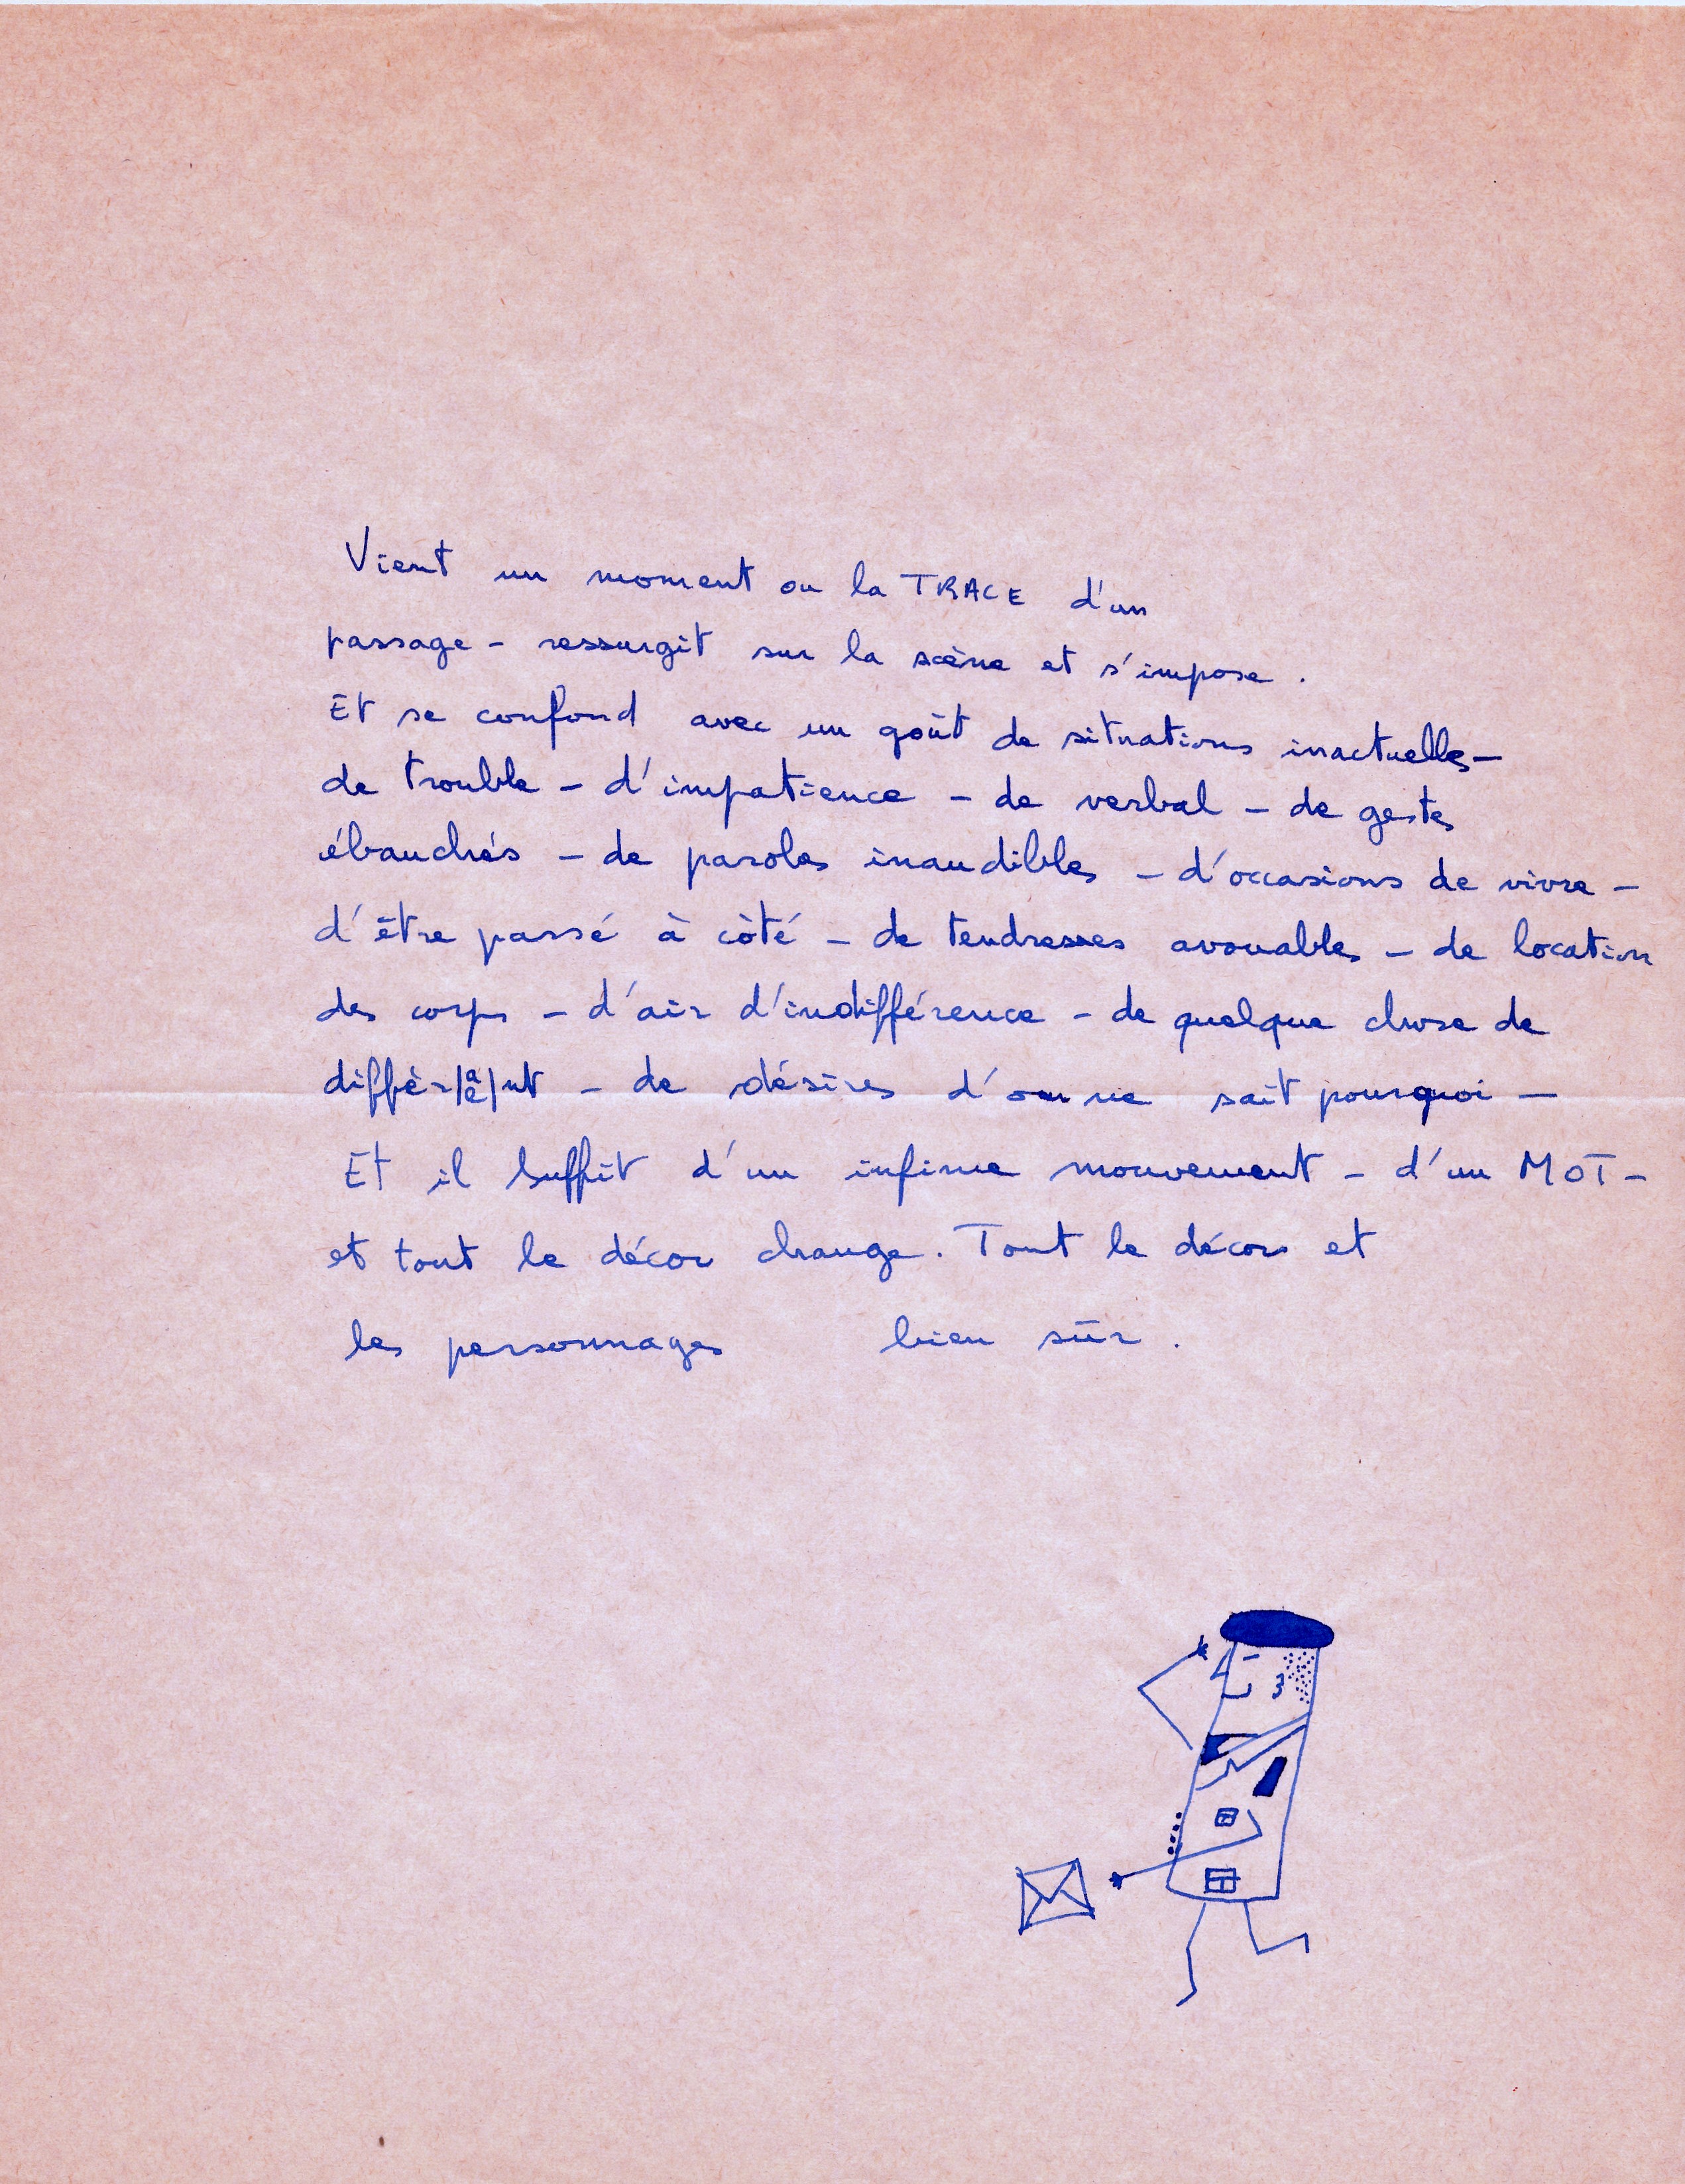 Vient un moment ou la TRACE d'un
passage - ressurgit sur la scène et s'impose .
Et se confond avec un goût de situations inactuelles -
de trouble - d'impatience - de verbal - de gestes
ébauchés - de paroles inaudibles - d'occasions de vivre -
d'être passé à côté - de tendresses avouables - de location
des corps - d'air d'indifférence - de quelque chose de
différ/a/e/nt - de désirs d'on ne sait pourquoi -
Et il suffit d'un infime mouvement - d'un MOT -
et tout le décor change. Tout le décor et
les personnages bien sûr .